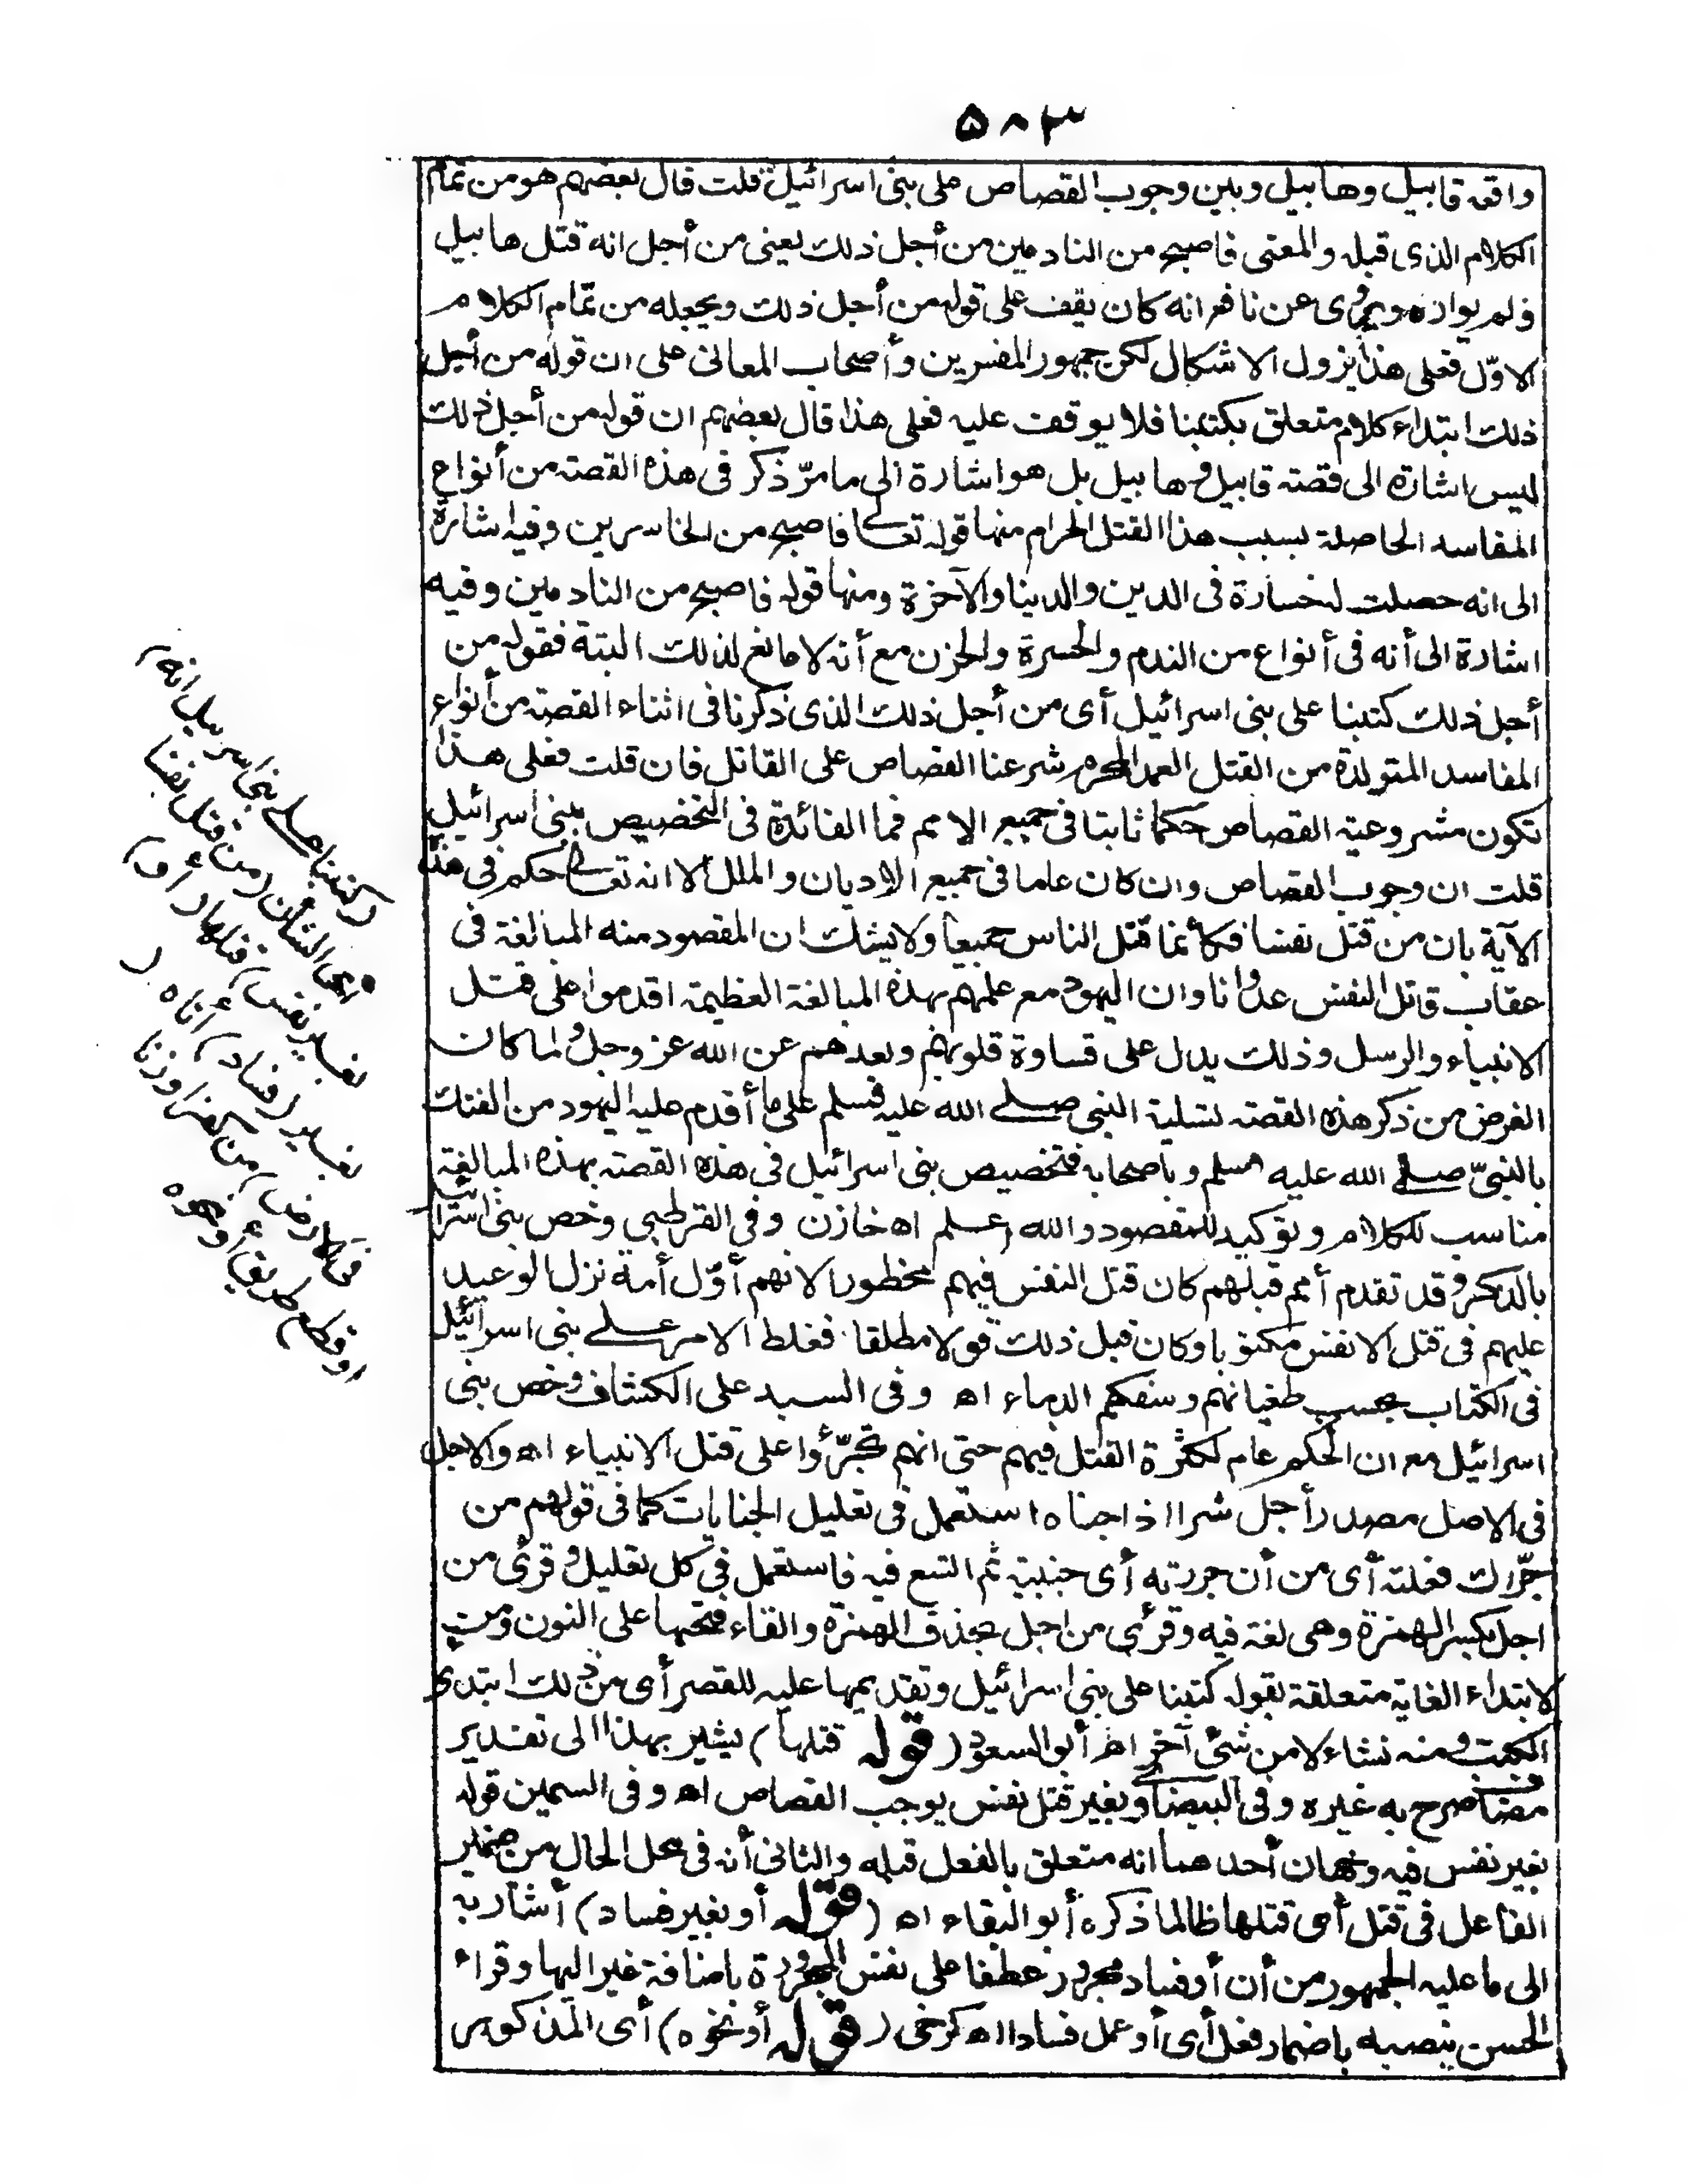 ٥٨٣
واقعة قابيل وهابيل وبين وجوب القصاص على بنى اسرائيل قلت قال بعضهم هو من تمام
الكلام الذى قبله والمعنى فاصبح من النادمين من أجل ذلك يعنى من أجل انه قتل هابيل
ولم يواره ويروى عن نافع انه كان يقف على قوله من أجل ذلك ويجعله من تمام الكلام
الاوّل فعلى هذا يزول الاشكال لكن جمهور المفسرين وأصحاب المعانى على ان قوله من أجل
ذلك ابتداء كلام متعلق بكتبنا فلا يوقف عليه فعلى هذا قال بعضهم ان قوله من أجل ذلك
ليس اشارة الى قصة قابيل وهابيل بل هو اشارة الى ما مرّ ذكر فى هذه القصة من أنواع
المفاسد الحاصلة بسبب هذا القتل الحرام منها قوله تعالى فاصبح من الخاسرين وفيه اشارة
الى انه حصلت له خسارة فى الدين والدنيا والآخرة ومنها قوله فاصبح من النادمين وفيه
اشارة الى أنه فى أنواع من الندم والحسرة والحزن مع أنه لا مانع لذلك البتة فقوله من
أجل ذلك كتبنا على بنى اسرائيل أى من أجل ذلك الذى ذكرنا فى اثناء القصة من أنواع
المفاسد المتولدة من القتل العمد المحرم شرعنا القصاص على القاتل فان قلت فعلى هذا
تكون مشروعية القصاص حكما ثابتا فى جميع الامم فما الفائدة فى التخصيص ببنى اسرائيل
قلت ان وجوب القصاص وان كان عاما فى جميع الاديان والملل الا انه تعالى حكم فى هذه
الآية بان من قتل نفسا فكأنما قتل الناس جميعا ولا يشك ان المقصود منه المبالغة فى
عقاب قاتل النفس عدوانا وان اليهود مع علمهم بهذه المبالغة العظيمة اقدموا على قتل
الانبياء والرسل وذلك يدل على قساوة قلوبهم وبعدهم عن الله عز وجل ولما كان
الغرض من ذكر هذه القصة تسلية النبى صلى الله عليه وسلم على ما أقدم عليه اليهود من الفتك
بالنبىّ صلى الله عليه وسلم وباصحابه فتخصيص بنى اسرائيل فى هذه القصة بهذه المبالغة
مناسب للكلام وتوكيد للمقصود والله اعلم اه خازن وفى القرطبى وخص بنى اسرائيل
بالذكر وقد تقدم أمم قبلهم كان قتل النفس فيهم محظورا لانهم أوّل أمة نزل الوعيد
عليهم فى قتل الانفس مكتوبا وكان قبل ذلك قولا مطلقا فغلظ الامر على بنى اسرائيل
فى الكتاب بحسب طغيانهم وسفكهم الدماء اه وفى السيد على الكشاف وخص بنى
اسرائيل مع ان الحكم عام لكثرة القتل فيهم حتى انهم تجرّؤا على قتل الانبياء اه والاجل
فى الاصل مصدر أجل شرا اذا جناه استعمل فى تعليل الجنايات كما فى قولهم من
جرّاك فعلته أى من أن جررته أى جنيته ثم اتسع فيه فاستعمل فى كل تعليل وقرئ من
اجل بكسر الهمزة وهى لغة فيه وقرئ من اجل بحذف الهمزة والقاء فتحها على النون ومن
لابتداء الغاية متعلقة بقوله كتبنا على بنى اسرائيل وتقديمها عليه للقصر أى من ذلك ابتدئ
الكتب ومنه نشاء لا من شئ آخر اه أبو السعود (قوله قتلها) يشير بهذا الى تقدير
مضاف صرح به غيره وفى البيضاوى بغير قتل نفس يوجب القصاص اه وفى السمين قوله
بغير نفس فيه وجهان أحدهما انه متعلق بالفعل قبله والثانى أنه فى محل الحال من ضمير
الفاعل فى قتل أى قتلها ظالما ذكره أبو البقاء اه (قوله أو بغير فساد) أشار به
الى ما عليه الجمهور من أن أو فساد مجرور عطفا على نفس المجرورة باضافة غير اليها وقراء
الحسن بنصبه باضمار فعل أى أو عمل فسادا اه كرخى (قوله أو نحوه) أى المذكور من
(كتبنا على بنى اسرائيل انه)
أى الشأن (من قتل نفسا
بغير نفس) قتلها (أو)
بغير (فساد) أتاه (
فى الارض) من كفر او زنا
او قطع طريق أو نحوه